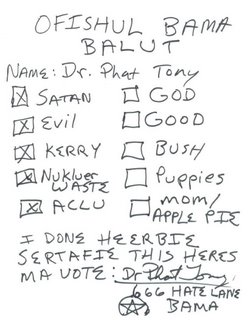 OFISHUL BAMA
BALUT
NAME: Dr. Phat Tony
SATAN GOD
Evil GOOD
KERRY BUSH
Nukluer WASTE Puppies
ACLU mom/ APPLE PIE
I DONE HEERBIE
SERTAFIE THIS HERES
MA VOTE: Dr Phat Tony
666 HATE LANE
BAMA